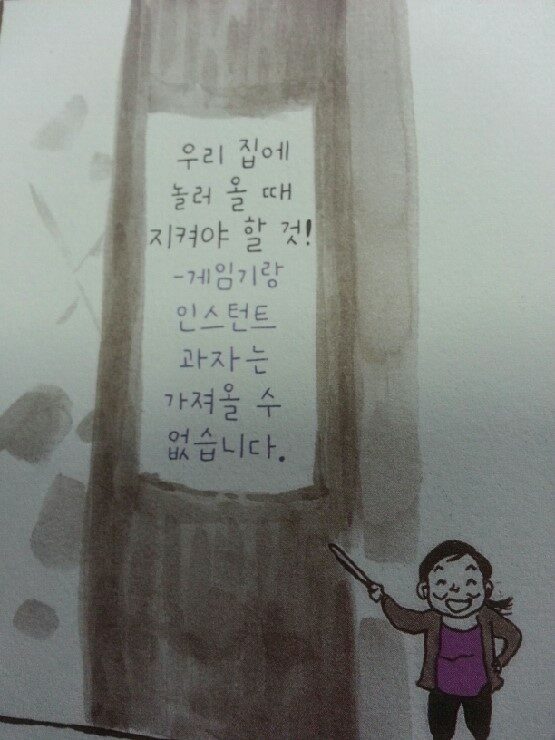 우리 집에
놀러 올 때
지켜야 할 것!
-게임기랑
인스턴트
과자는
가져올 수
없습니다.